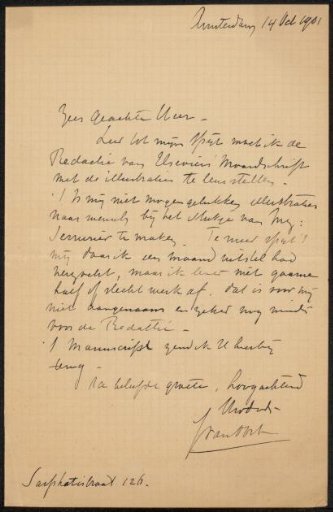 Amsterdam 14 Oct 1901
Zeer geachte Heer.
Zeer tot mijn spijt moet ik de
Redactie van Elseviers Maandschrift
met de illustraties te leur stellen.
't Is mij niet mogen gelukken illustraties
naar wensch bij het stukje van Mej:
Serrurier te maken. Te meer spijt 't
mij daar ik een maand uitstel had
verzocht, maar ik lever niet gaarne
half of slecht werk af. dat is voor mij
niet aangenaam en zeker nog minder
voor de Redactie.
't Manuscript zend ik U hierbij
terug.
Na beleefde groete, hoogachtend
J van Oort
Sarphatistraat 126.